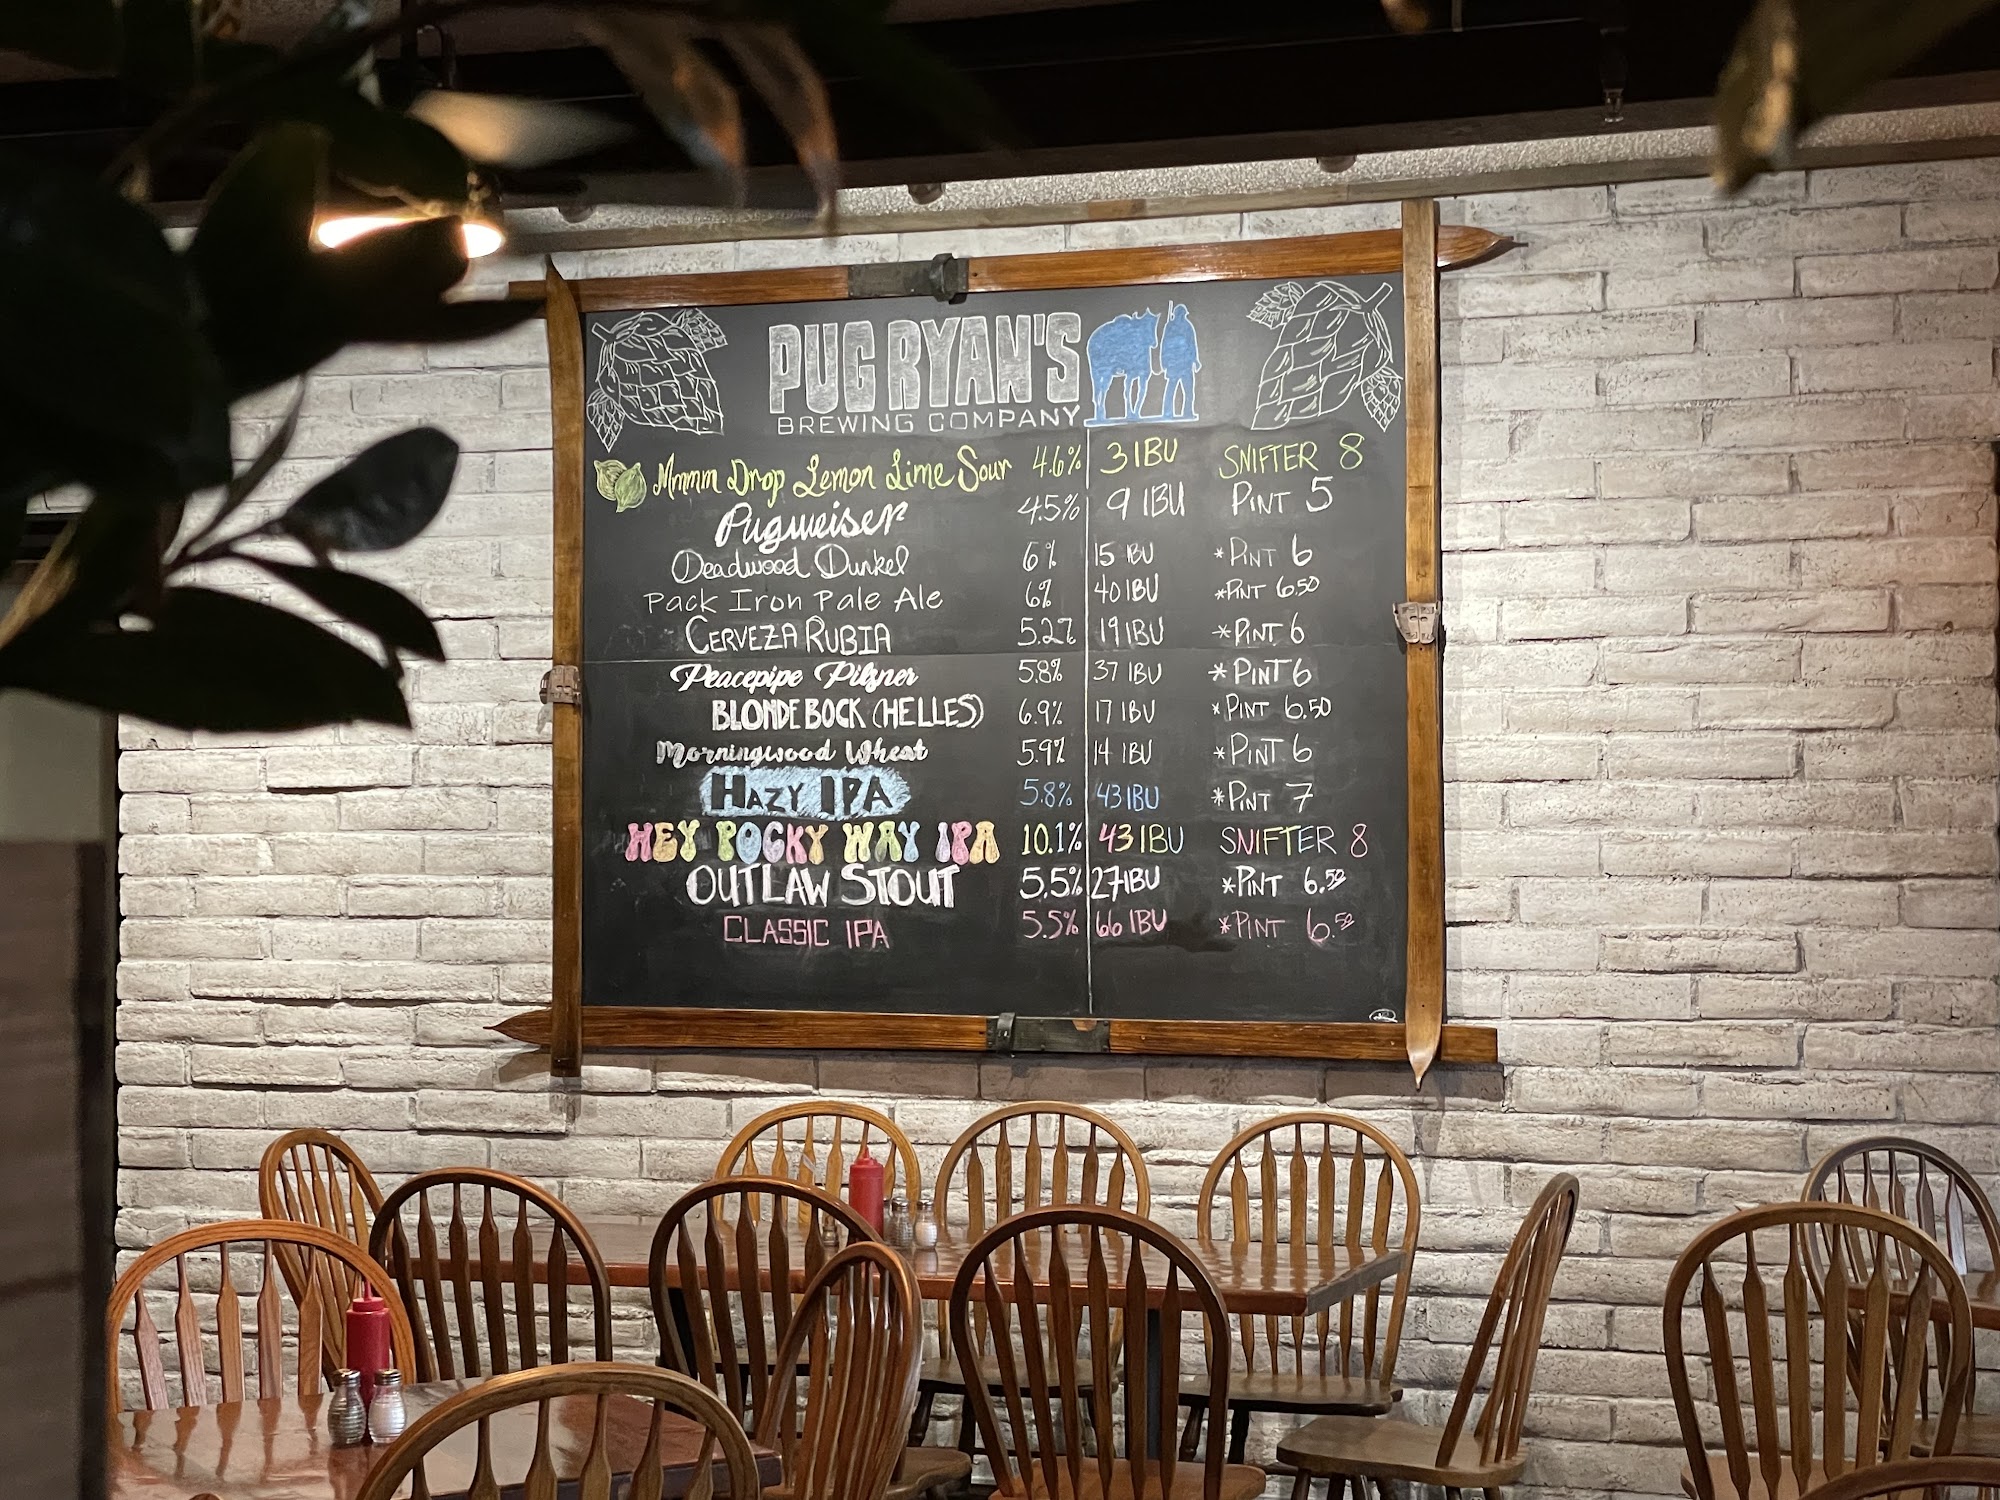 PUG RYAN'S
BREWING COMPANY
Mmmm Drop Lemon Lime Sour 4.6% 3 IBU SNIFTER 8
Pugweiser 4.5% 9 IBU PINT 5
Deadwood Dunkel 6% 15 IBU *PINT 6
Pack Iron Pale Ale 6% 40 IBU *PINT 6.50
CERVEZA RUBIA 5.2% 19 IBU *PINT 6
Peacepipe Pilzner 5.8% 37 IBU *PINT 6
BLONDE BOCK (HELLES) 6.9% 17 IBU *PINT 6.50
Morningwood Wheat 5.9% 14 IBU *PINT 6
HAZY IPA 5.8% 43 IBU *PINT 7
HEY POCKY WAY IPA 10.1% 43 IBU SNIFTER 8
OUTLAW STOUT 5.5% 27 IBU *PINT 6.50
CLASSIC IPA 5.5% 66 IBU *PINT 6.50